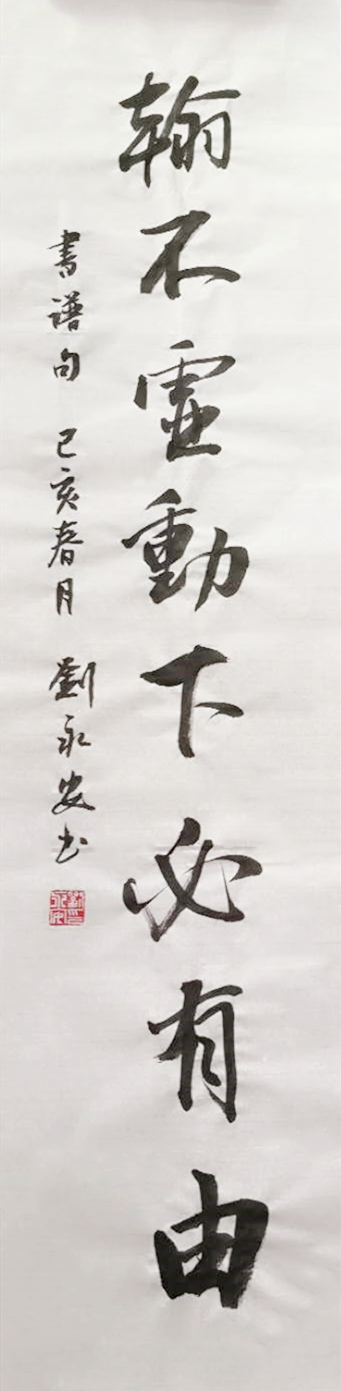 翰不虛動下必有由
書譜句 己亥春月 劉永安书